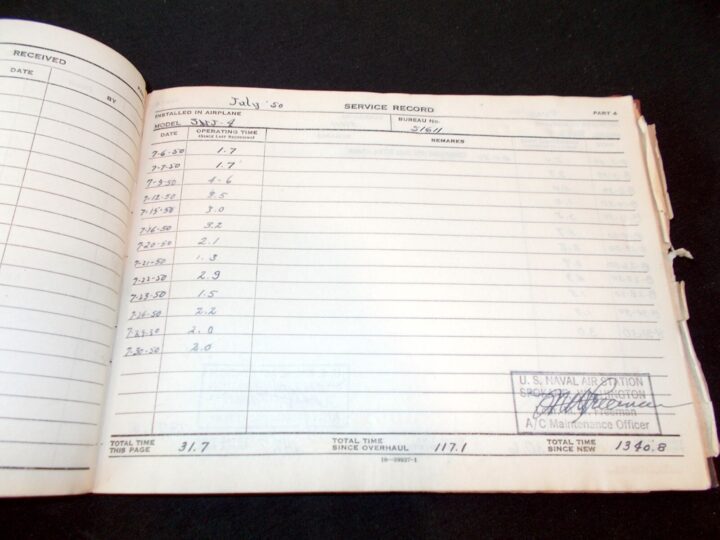 RECEIVED
DATE
BY
July '50
SERVICE RECORD
PART 4
INSTALLED IN AIRPLANE
MODEL SNJ-4
BUREAU No. 51611
DATE OPERATING TIME REMARKS
7-6-50 1.7
7-7-50 1.7
7-9-50 4.6
7-12-50 3.5
7-15-50 3.0
7-16-50 3.2
7-20-50 2.1
7-21-50 1.3
7-22-50 2.9
7-23-50 1.5
7-26-50 2.2
7-29-50 2.0
7-30-50 2.0
U. S. NAVAL AIR STATION
SPOKANE, WASHINGTON
Freeman
A/C Maintenance Officer
TOTAL TIME THIS PAGE 31.7 TOTAL TIME SINCE OVERHAUL 117.1 TOTAL TIME SINCE NEW 1340.8